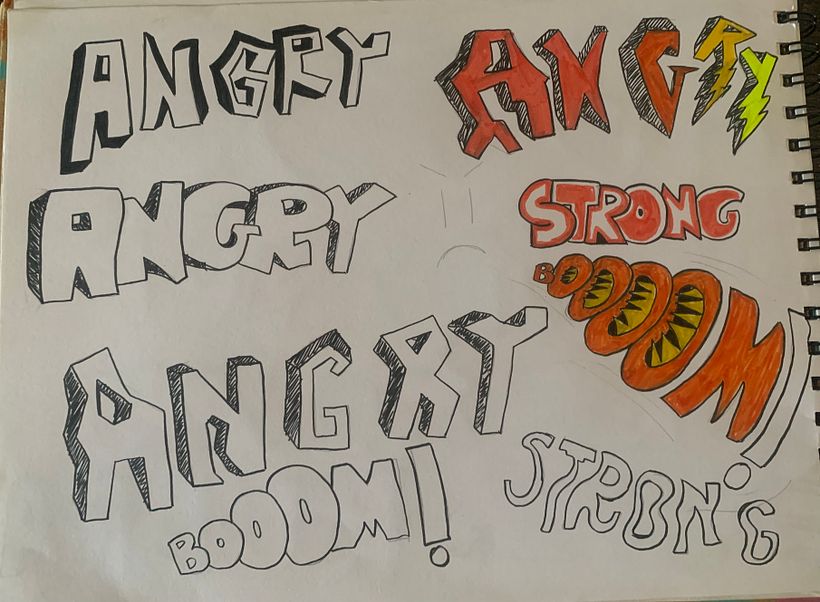 ANGRY
ANGRY
ANGRY
STRONG
BOOOOM!
ANGRY
STRONG
BOOOM!